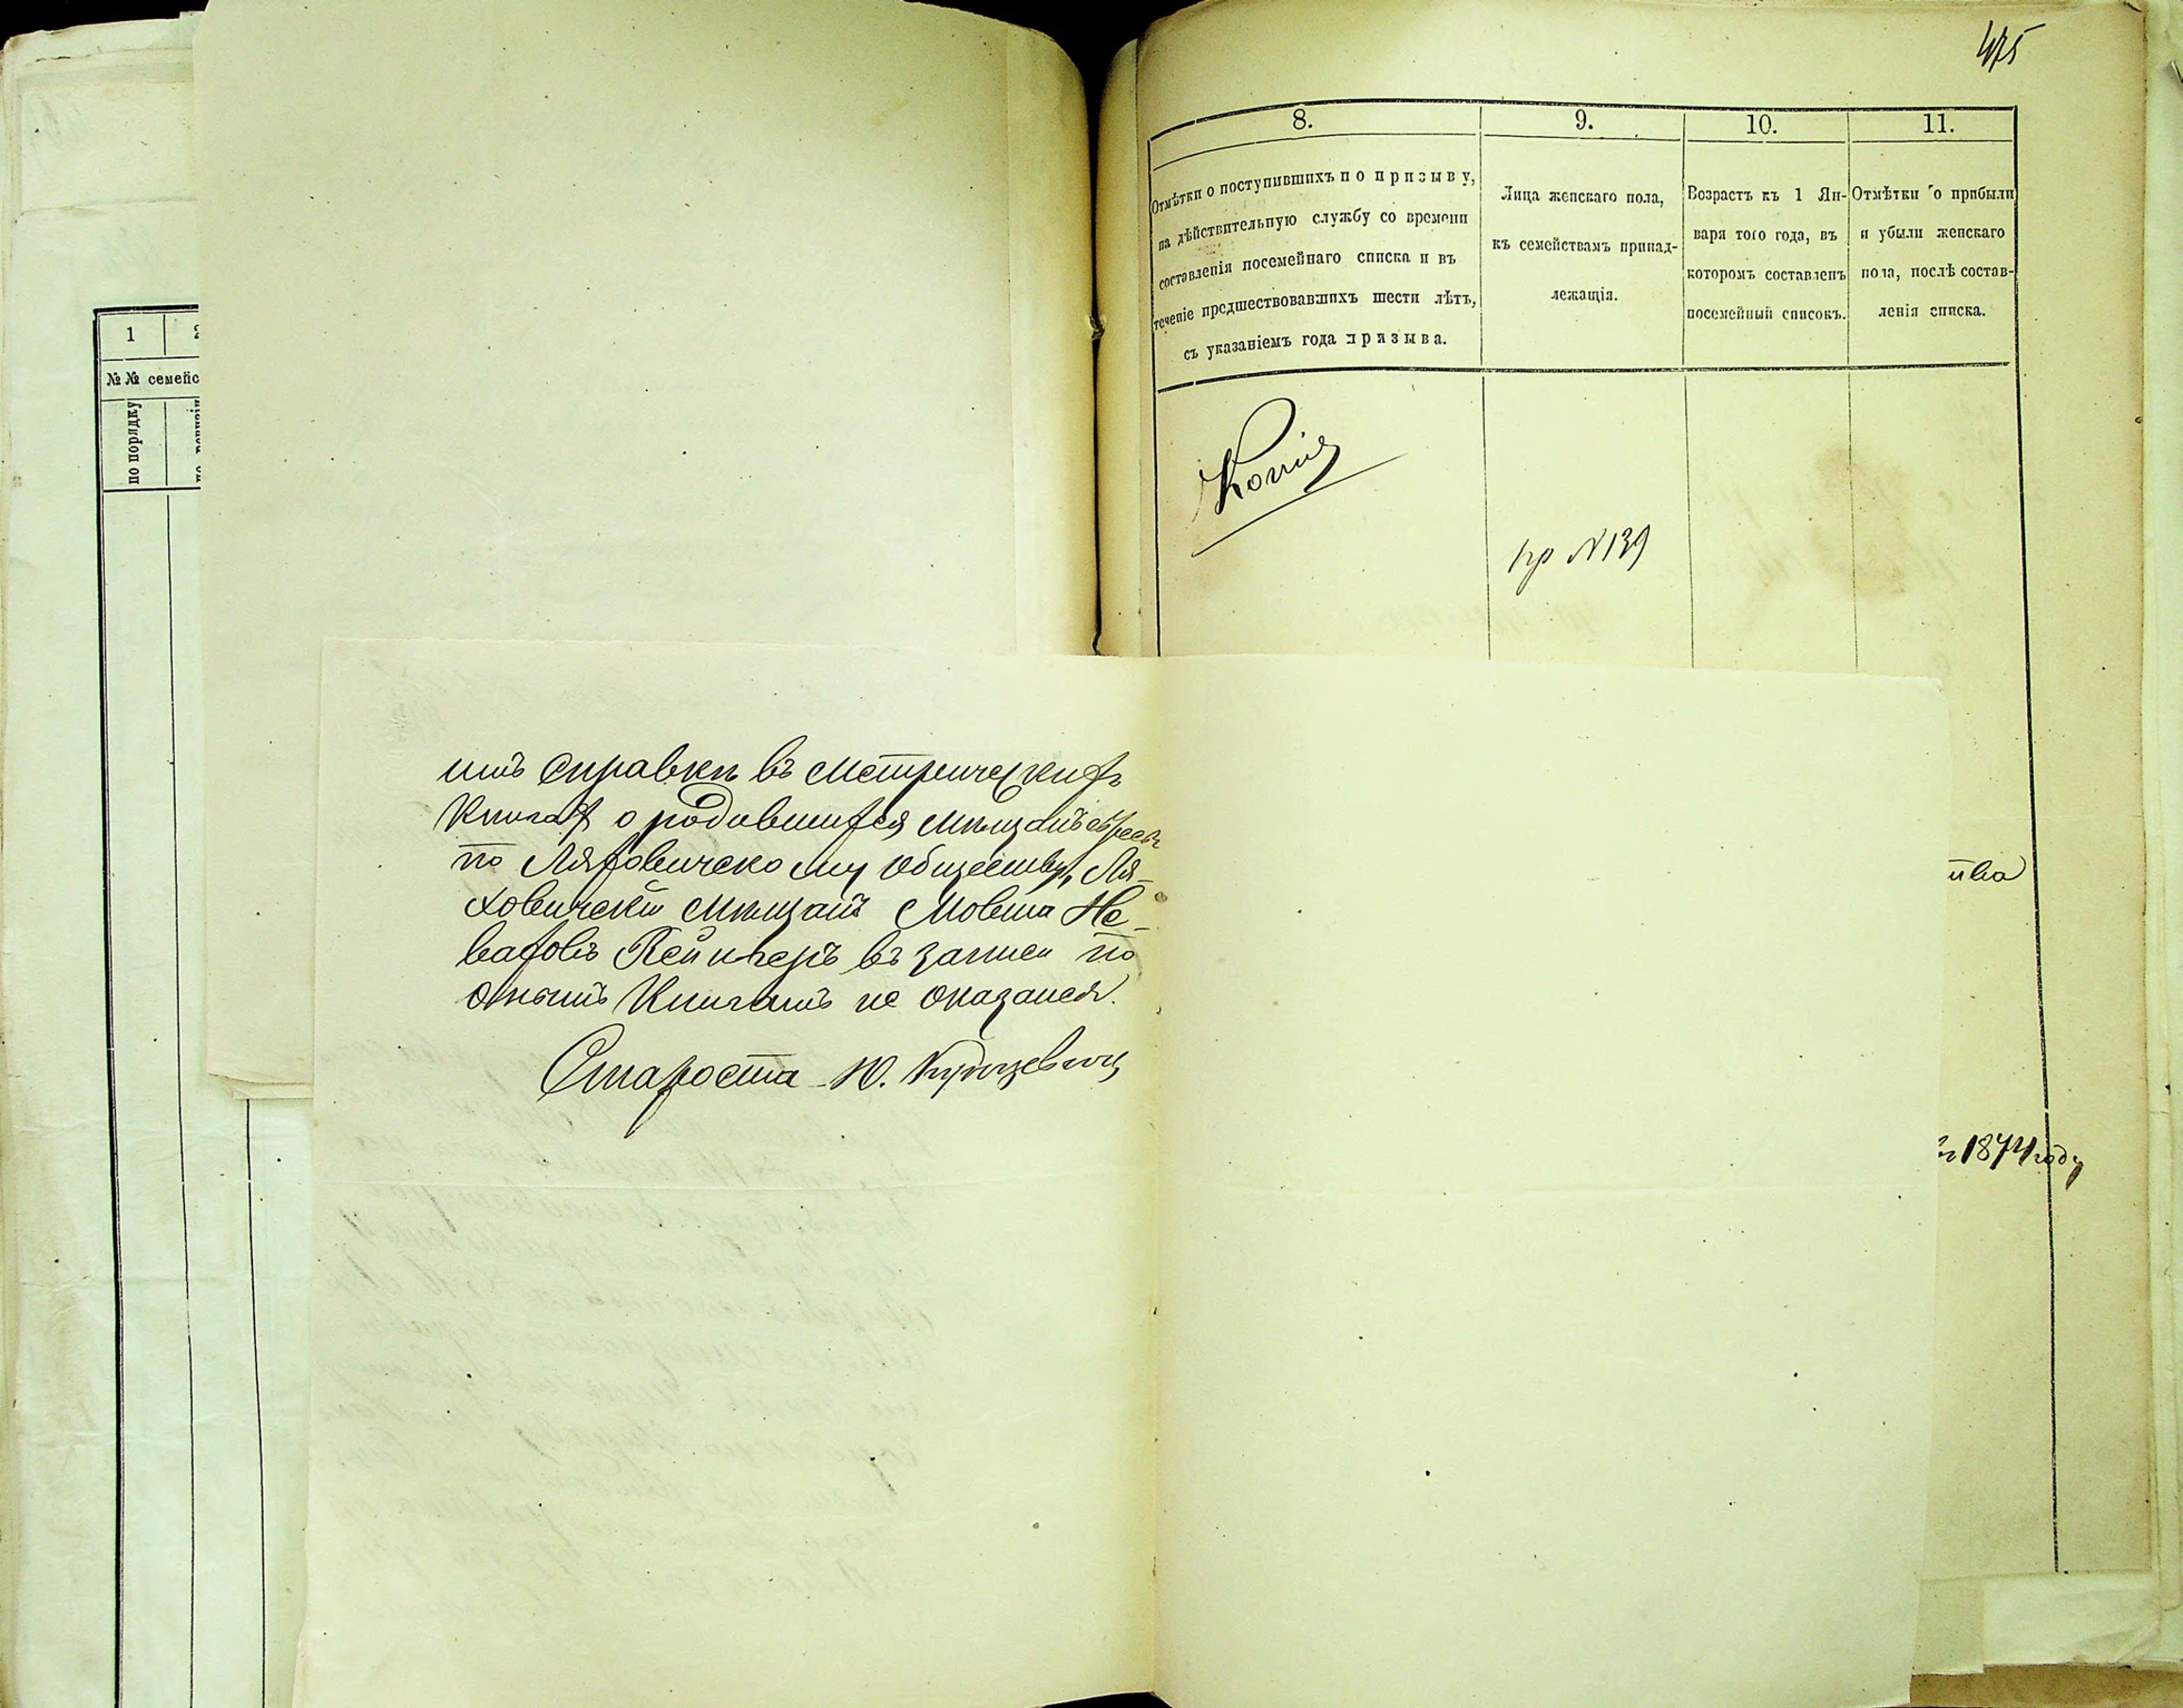 475
1
№№ семейс
по порядку
8.
9.
10.
11.
Отмѣтки о поступившихъ по призыву,
на дѣйствительную службу со времени
составленія посемейнаго списка и въ
теченіе предшествовавшихъ шести лѣтъ,
съ указаніемъ года призыва.
Лица женскаго пола,
къ семействамъ принад-
лежащія.
Возрастъ къ 1 Ян-
варя того года, въ
которомъ составленъ
посемейный списокъ.
Отмѣтки о прибыли
и убыли женскаго
пола, послѣ состав-
ленія списка.
Копія
пр N139
справки въ Метрическихъ
Книгах о родившихся мѣщанъ евреевъ
по Ляховичскому обществу, Ля-
ховичскій мѣщанъ Мовша Не-
ваховъ въ записи по
онымъ Книгамъ не оказался.
Староста Ю.
1874 году